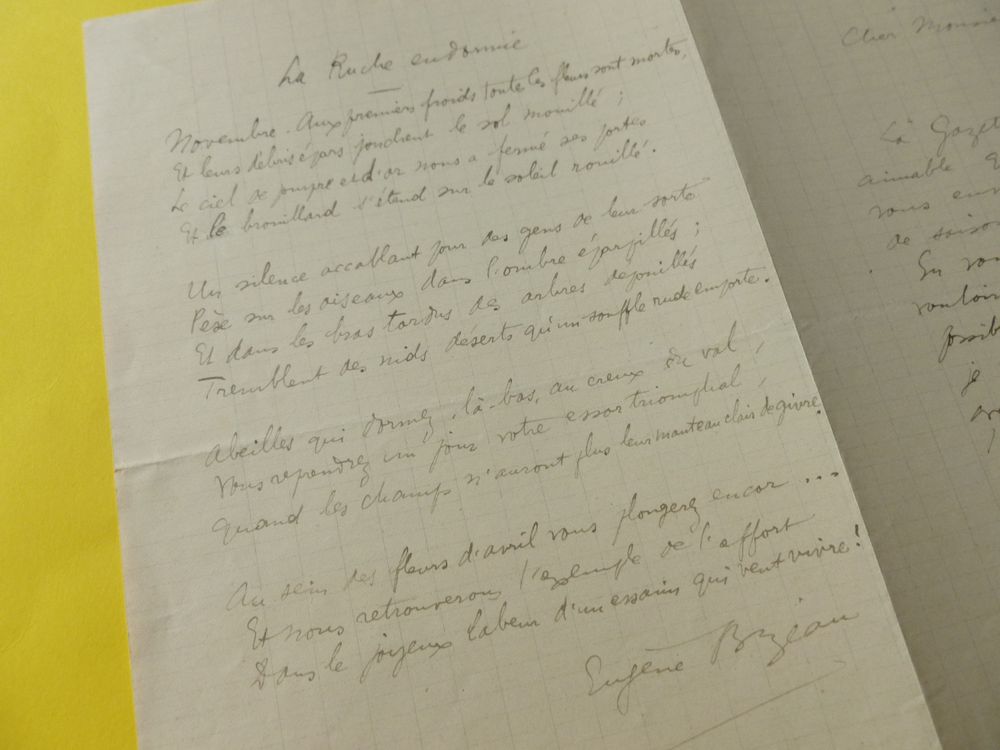 La Ruche endormie
Novembre. Aux premiers froids toutes les fleurs sont mortes,
Et leurs débris épars jonchent le sol mouillé ;
Le ciel de pourpre et d'or nous a fermé ses portes
Et le brouillard s'étend sur le soleil rouillé.
Un silence accablant pour des gens de leur sorte
Pèse sur les oiseaux dans l'ombre éparpillés ;
Et dans les bras tordus des arbres dépouillés
Tremblent des nids déserts qu'un souffle rude emporte.
Abeilles qui dormez, là-bas, au creux du val,
Vous reprendrez un jour votre essor triomphal,
Quand les champs n'auront plus leur manteau clair de givre.
Au sein des fleurs d'avril vous plongerez encor ...
Et nous retrouverons l'exemple de l'effort
Dans le joyeux labeur d'un essaim qui veut vivre !
Eugène Bizeau
Cher Monsie
La Gazet
aimable
vous env
de saiso
En vou
vouloir
possib
je